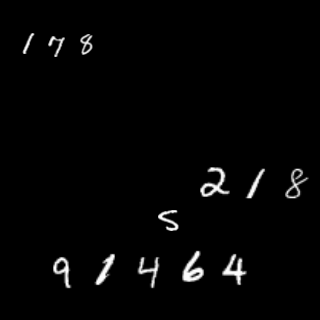 178
218
5
91464